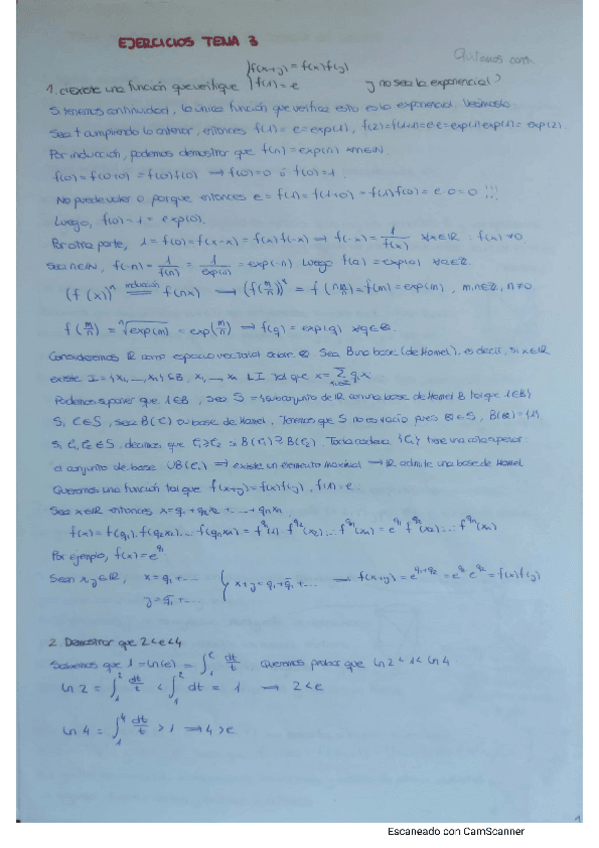 EJERCICIOS TEMA 3
Quitamos cont.
1. ¿Existe una función que verifique { f(x+y) = f(x)f(y) f(1) = e y no sea la exponencial?
Si tenemos continuidad, la única función que verifica esto es la exponencial. Veámoslo.
Sea f cumpliendo lo anterior, entonces f(1) = e = exp(1), f(2) = f(1+1) = e·e = exp(1)exp(1) = exp(2).
Por inducción, podemos demostrar que f(n) = exp(n) ∀n∈ℕ.
f(0) = f(0+0) = f(0)f(0) → f(0)=0 ó f(0)=1.
No puede valer 0 porque entonces e = f(1) = f(1+0) = f(1)f(0) = e·0 = 0 !!!
Luego, f(0) = 1 = exp(0).
Por otra parte, 1 = f(0) = f(x-x) = f(x)f(-x) → f(-x) = 1/f(x) ∀x∈ℝ : f(x) ≠ 0
Sea n∈ℕ, f(-n) = 1/f(n) = 1/exp(n) = exp(-n). Luego f(a) = exp(a) ∀a∈ℤ.
(f(x))ⁿ = inducción f(nx) → (f(m/n))ⁿ = f(n m/n) = f(m) = exp(m), m,n∈ℤ, n≠0.
f(m/n) = ⁿ√exp(m) = exp(m/n) → f(q) = exp(q) ∀q∈ℚ.
Consideremos ℝ como espacio vectorial sobre ℚ. Sea B una base (de Hamel), es decir, si x∈ℝ
existe I = {x₁, ..., xₙ} ⊆ B, x₁, ... xₙ LI tal que x = Σ qᵢxᵢ
Podemos suponer que 1∈B, Sea S = {subconjunto de ℝ con una base de Hamel B tal que 1∈B}
Si C∈S, sea B(C) su base de Hamel. Tenemos que S no es vacío pues ℚ∈S, B(ℚ)={1}
Si C₁, C₂∈S, decimos que C₁≥C₂ si B(C₁)⊇B(C₂). Toda cadena {Cᵢ} tiene una cota superior
el conjunto de base ∪B(Cᵢ) ⟹ existe un elemento maximal → ℝ admite una base de Hamel
Queremos una función tal que f(x+y) = f(x)f(y), f(1) = e.
Sea x∈ℝ entonces x = q₁ + q₂x₂ + ... + qₙxₙ
f(x) = f(q₁)·f(q₂x₂)...f(qₙxₙ) = f^q₁(1)·f^q₂(x₂)...f^qₙ(xₙ) = e^q₁ f^q₂(x₂)...f^qₙ(xₙ)
Por ejemplo, f(x) = e^q₁
Sean x,y∈ℝ, x = q₁ + ... y = q̄₁ + ... { x+y = q₁+q̄₁+... → f(x+y) = e^(q₁+q₂) = e^q₁ e^q₂ = f(x)f(y)
2. Demostrar que 2<e<4
Sabemos que 1 = ln(e) = ∫₁ᵉ dt/t. Queremos probar que ln 2 < 1 < ln 4
ln 2 = ∫₁² dt/t < ∫₁² dt = 1 → 2<e
ln 4 = ∫₁⁴ dt/t > 1 → 4>e
1
Escaneado con CamScanner